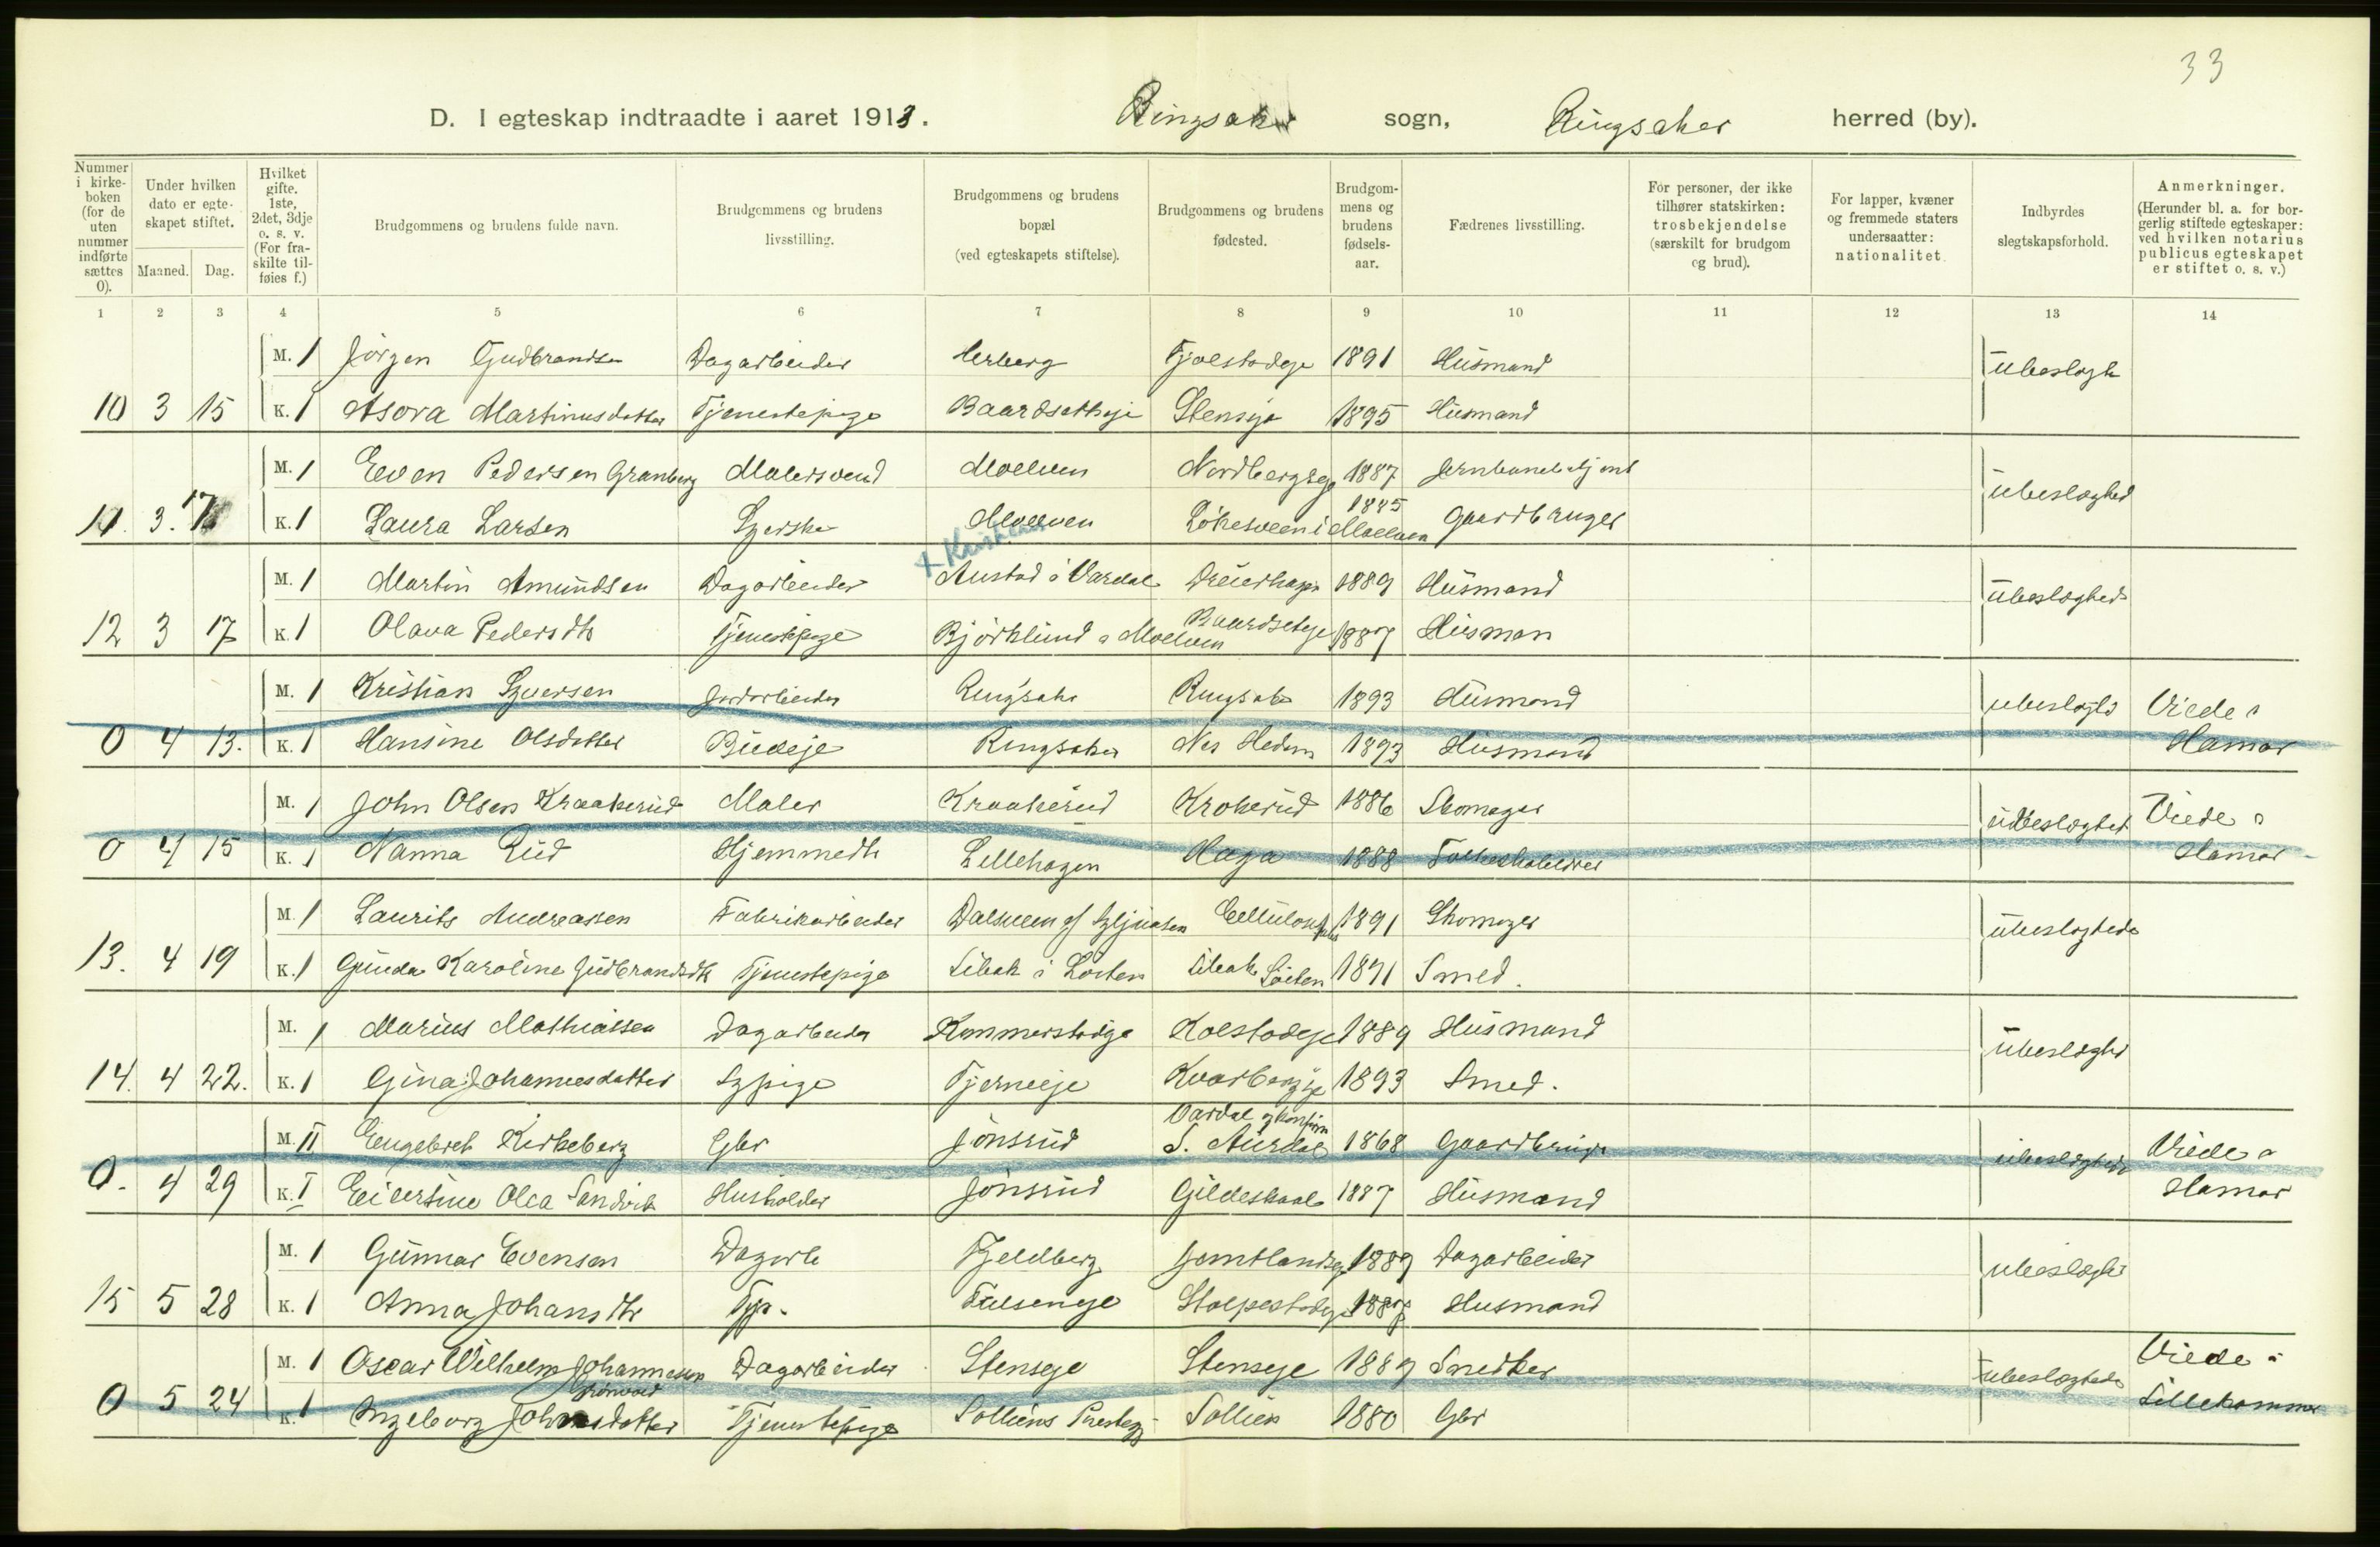 33
D. I egteskap indtraadte i aaret 1913. Ringsaker sogn, Ringsaker herred (by).
Nummer i kirkeboken (for de uten nummer indførte sættes 0).
Under hvilken dato er egteskapet stiftet.
Maaned. Dag.
Hvilket gifte. 1ste, 2det, 3dje o. s. v. (For fraskilte tilføies f.)
Brudgommens og brudens fulde navn.
Brudgommens og brudens livsstilling.
Brudgommens og brudens bopæl (ved egteskapets stiftelse).
Brudgommens og brudens fødested.
Brudgommens og brudens fødselsaar.
Fædrenes livsstilling.
For personer, der ikke tilhører statskirken: trosbekjendelse (særskilt for brudgom og brud).
For lapper, kvæner og fremmede staters undersaatter: nationalitet
Indbyrdes slegtskapsforhold.
Anmerkninger. (Herunder bl. a. for borgerlig stiftede egteskaper: ved hvilken notarius publicus egteskapet er stiftet o. s. v.)
1 2 3 4 5 6 7 8 9 10 11 12 13 14
M. 1 Jörgen Gudbrandsen Dagarbeider Herberg Tjoelstadeje 1891 Husmand ubeslegte
10 3 15 K. 1 Asora Martinusdatter Tjenestepige Baardsetheje Stenseje 1895 Husmand
M. 1 Even Pedersen Granberg Malersvend Moelven Nordbergseje 1887 Jernbanebetjent ubeslegted
11. 3. 17 K. 1 Laura Larsen Syerske Moelven Lökesveen i Moelven 1885 Gaardbruger
+ Kristiania
M. 1 Martin Amundsen Dagarbeider Austad i Vardal Dreierhagen 1889 Husmand ubeslegted
12 3 17 K. 1 Olava Pedersdtr Tjenestepige Björklund i Moelven Baardseteje 1887 Husman
M. 1 Kristian Syversen Jordarbeider Ringsaker Ringsaker 1893 Husmand ubeslegted Viede i
0 4 13. K. 1 Hansine Olsdatter Budeje Ringsaker Nes Hedem 1893 Husmand Hamar
M. 1 John Olsen Kraakerud Maler Kraakerud Krokerud 1886 Skomager ubeslegted Viede i
0 4 15 K. 1 Nanna Rud Hjemmedtr Lillehagen Haga 1888 Folkeskolelærer Hamar
M. 1 Laurits Andreassen Fabrikarbeider Dalsveen 1891 Skomager ubeslegtede
13. 4 19 K. 1 Gunda Karoline Gudbrandsdtr Tjenestepige Libak i Löiten Libak Löiten 1891 Smed.
M. 1 Marius Mathiassen Dagarbeider Kommerstadeje Kolstadeje 1889 Husmand ubeslegted
14. 4 22. K. 1 Gina Johannesdatter Sypige Tjerneeje Kvarbergeje 1893 Smed.
M. II Engebret Kirkeberg Gbr Jönsrud Vardal S. Aurdal 1868 Gaardbruger ubeslegtede Viede i
0. 4 29 K. I Eivertine Olea Sandvik Husholder Jönsrud Gildeskaal 1887 Husmand Hamar
M. 1 Gunnar Evensen Dagarb Fjeldberg Jemtlandseje 1889 Dagarbeider ubeslegted
15 5 28 K. 1 Anna Johansdtr Tjp. Fulsengeje Stolpestadeje 1887 Husmand
M. 1 Oscar Wilhelm Johannessen Dagarbeider Stenseje Stenseje 1889 Snedker ubeslegtede Viede i
0 5 24 K. 1 Ingeborg Johnsdatter Tjenestepige Solliens Prestegj Sollien 1880 Gbr Lillehammer